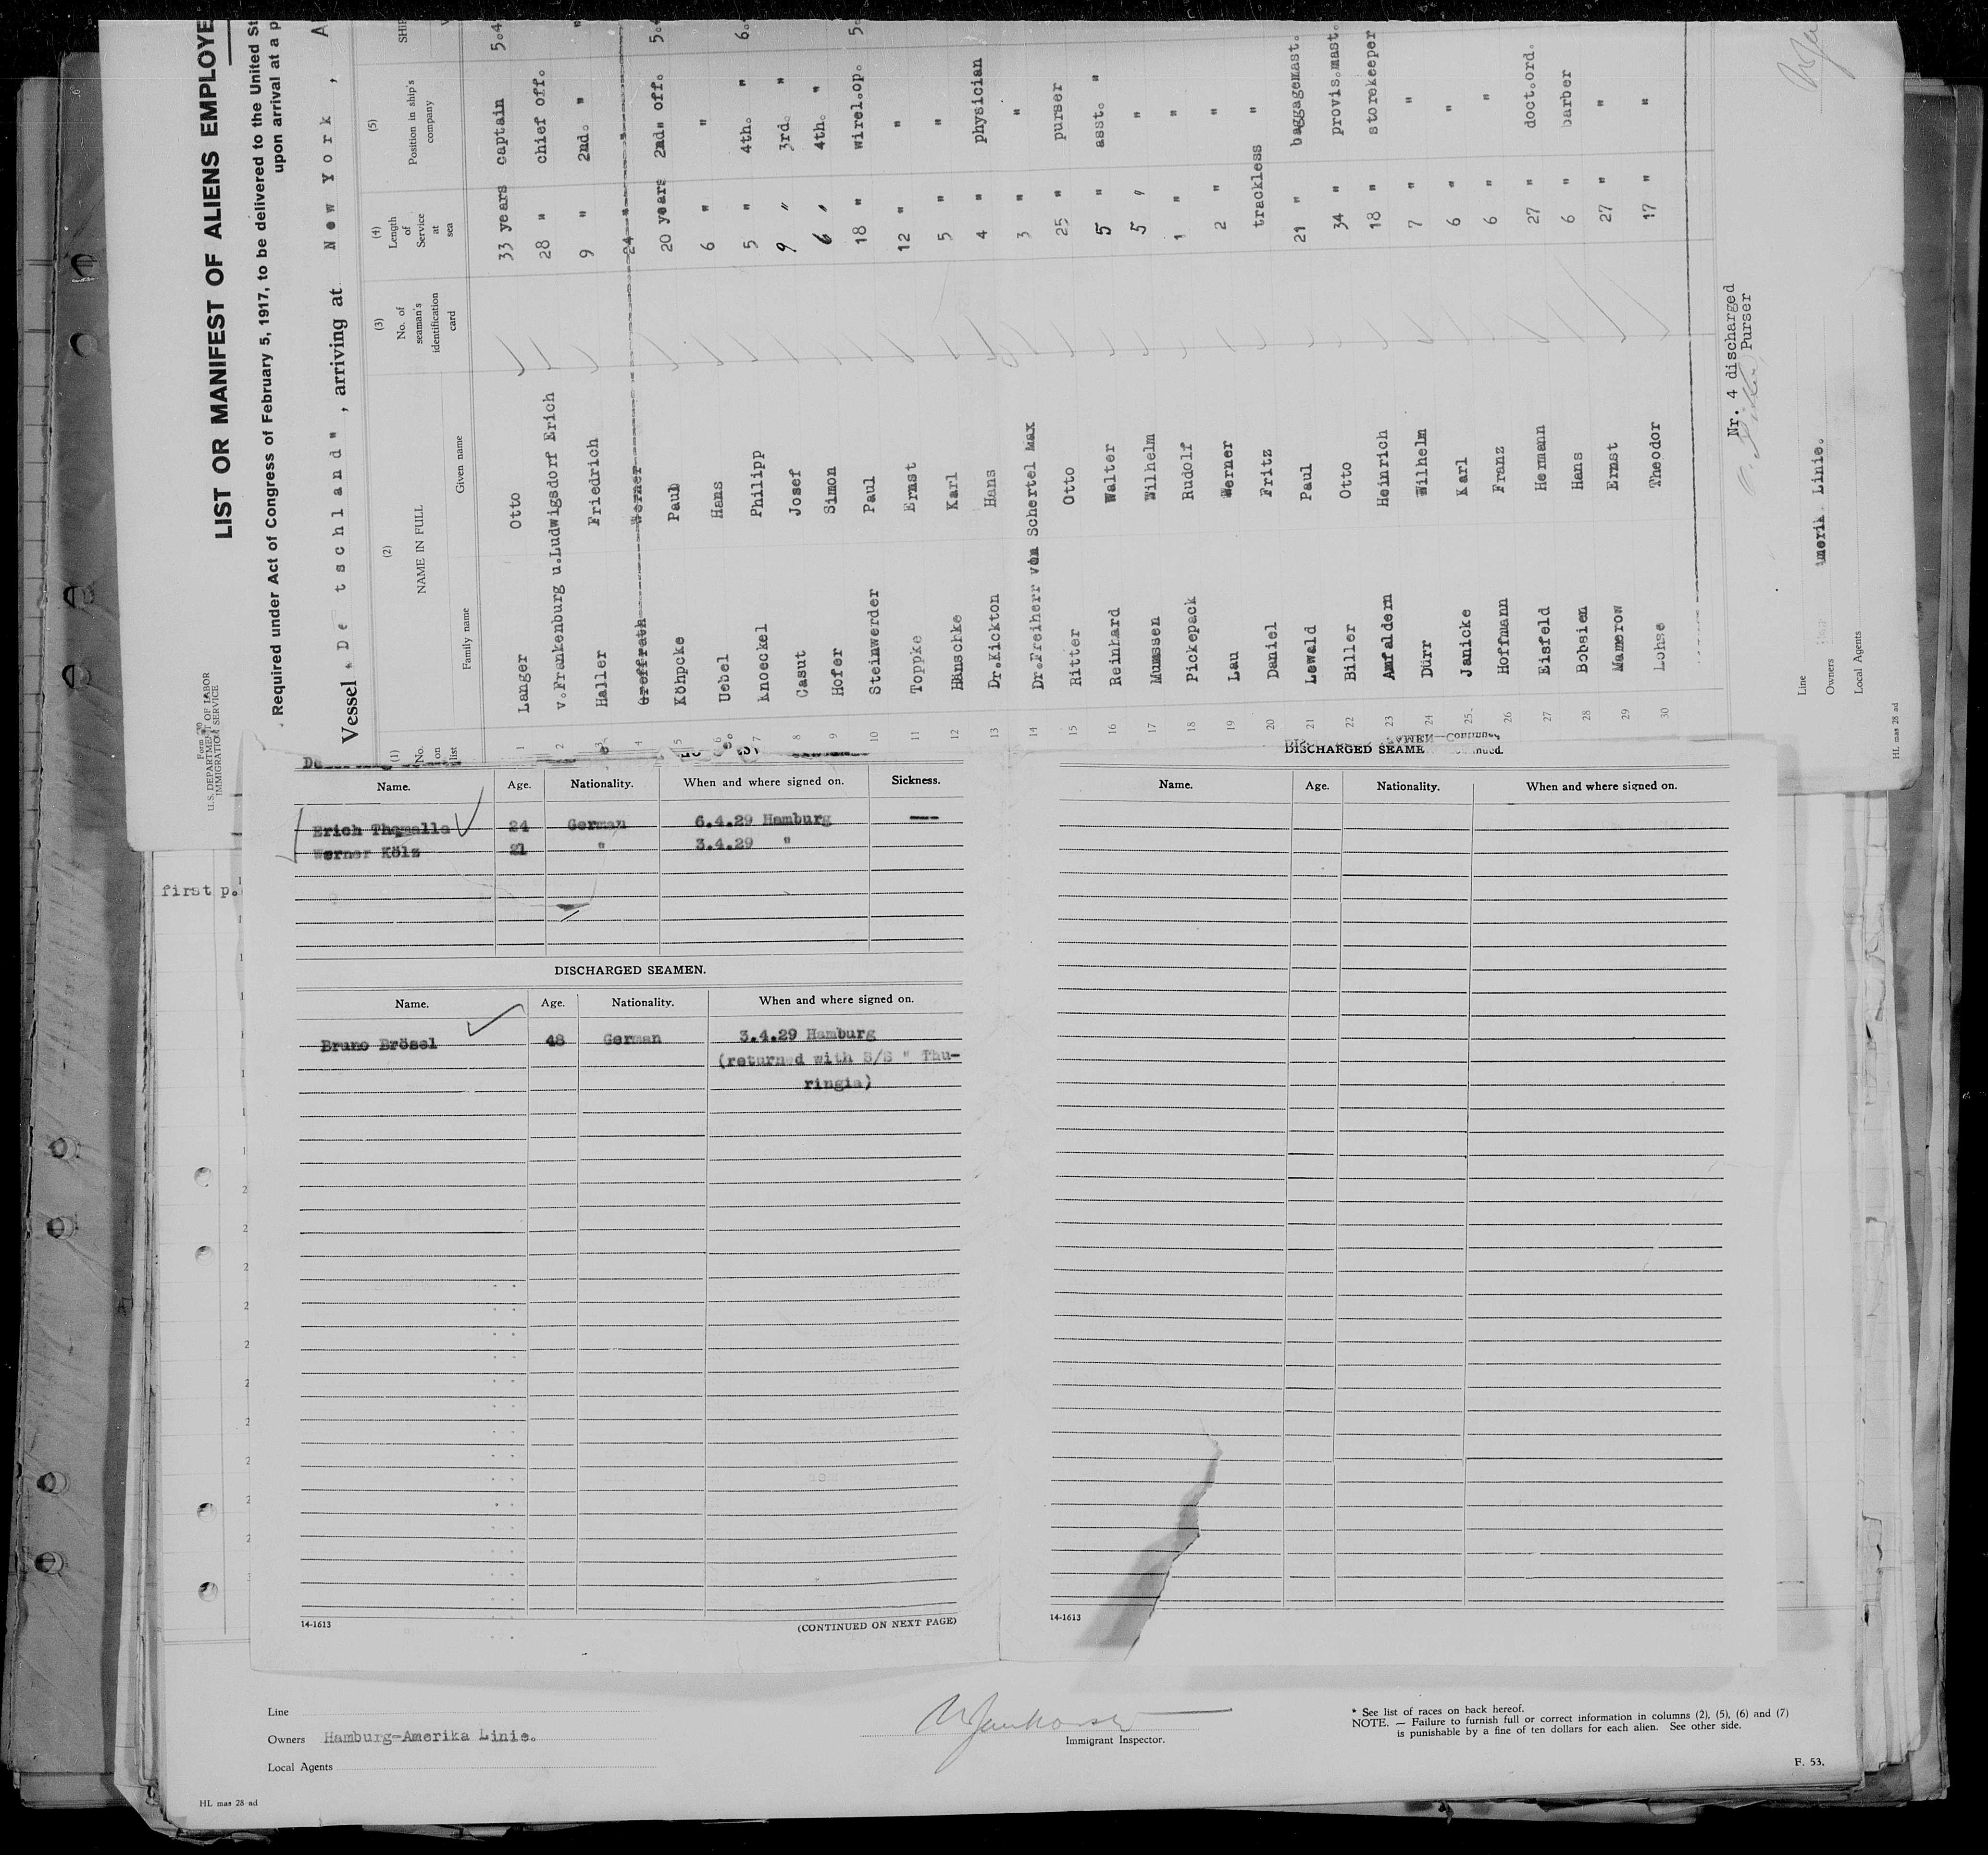 Form 680
U.S. DEPARTMENT OF LABOR
IMMIGRATION SERVICE
LIST OR MANIFEST OF ALIENS EMPLOYE
Required under Act of Congress of February 5, 1917, to be delivered to the United St
upon arrival at a p
Vessel " De tschland" , arriving at New York , A
(1) No. on list
(2) NAME IN FULL
Family name Given name
(3) No. of seaman's identification card
(4) Length of Service at sea
(5) Position in ship's company
SHI
1 Langer Otto 33 years captain 5.4
2 v.Frankenburg u.Ludwigsdorf Erich 28 " chief off.
3 Haller Friedrich 9 " 2nd. " "
4 Greffrath Werner 24 " "
5 Köhpcke Paul 20 years 2nd" off. 5.
6 Uebel Hans 6 " "
7 Knoeckel Philipp 5 " 4th. " 6.
8 Casut Josef 9 " 3rd. "
9 Hofer Simon 6 " 4th. "
10 Steinwerder Paul 18 " wirel.op. 5.
11 Toppke Ernst 12 " "
12 Hänschke Karl 5 " "
13 Dr.Kickton Hans 4 " physician
14 Dr.Freiherr von Schertel Max 3 " "
15 Ritter Otto 25 " purser
16 Reinhard Walter 5 " asst. "
17 Mumssen Wilhelm 5 " "
18 Pickepack Rudolf 1 " "
19 Lau Werner 2 " "
20 Daniel Fritz trackless "
21 Lewald Paul 21 " baggagemast.
22 Biller Otto 34 " provis.mast.
23 Amfaldern Heinrich 18 " storekeeper
24 Dürr Wilhelm 7 " "
25 Janicke Karl 6 " "
26 Hoffmann Franz 6 " "
27 Eisfeld Hermann 27 " doct.ord.
28 Bobsien Hans 6 " barber
29 Mamerow Ernst 27 " "
30 Lohse Theodor 17 " "
Nr. 4 discharged
Purser
Line
Owners Amerik. Linie.
Local Agents
HL mas 28 ad
first p.
Name. Age. Nationality. When and where signed on. Sickness.
Erich Thomalla 24 German 6.4.29 Hamburg —
Werner Kölz 21 " 3.4.29 "
DISCHARGED SEAMEN.
Name. Age. Nationality. When and where signed on.
Bruno Brösel 48 German 3.4.29 Hamburg
(returned with S/S " Thu-
ringia)
14-1613
(CONTINUED ON NEXT PAGE)
DISCHARGED SEAME
Name. Age. Nationality. When and where signed on.
14-1613
Line
Owners Hamburg-Amerika Linie.
Local Agents
Immigrant Inspector.
* See list of races on back hereof.
NOTE. — Failure to furnish full or correct information in columns (2), (5), (6) and (7)
is punishable by a fine of ten dollars for each alien. See other side.
F. 53.
HL mas 28 ad